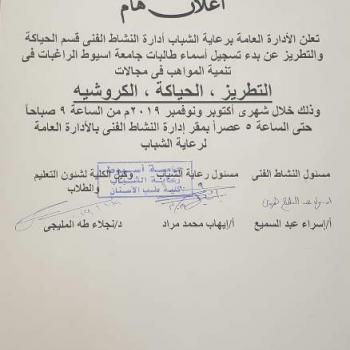 اعلان هام
تعلن الأدارة العامة برعاية الشباب أدارة النشاط الفنى قسم الحياكة
والتطريز عن بدء تسجيل أسماء طالبات جامعة اسيوط الراغبات فى
تنمية المواهب فى مجالات
التطريز ، الحياكة ، الكروشيه
وذلك خلال شهرى أكتوبر ونوفمبر ٢٠١٩م من الساعة ٩ صباحاً
حتى الساعة ٥ عصراً بمقر إدارة النشاط الفنى بالأدارة العامة
لرعاية الشباب
مسئول النشاط الفنى
مسئول رعاية الشباب
وكيل الكلية لشئون التعليم
والطلاب
جامعة أسيوط
رعاية الشباب
كلية طب الأسنان
أ/إسراء عبد السميع
أ/إيهاب محمد مراد
د/نجلاء طه المليجى